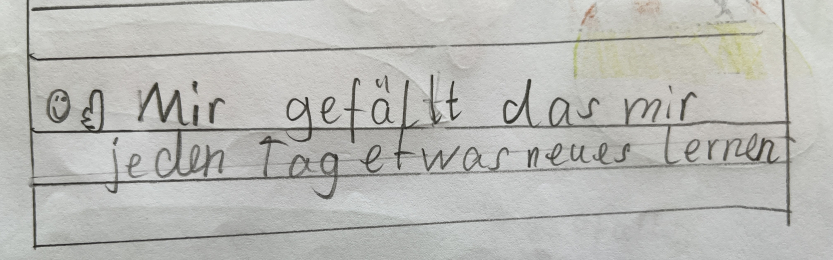 Mir gefällt das mir
jeden Tag etwas neues lernen